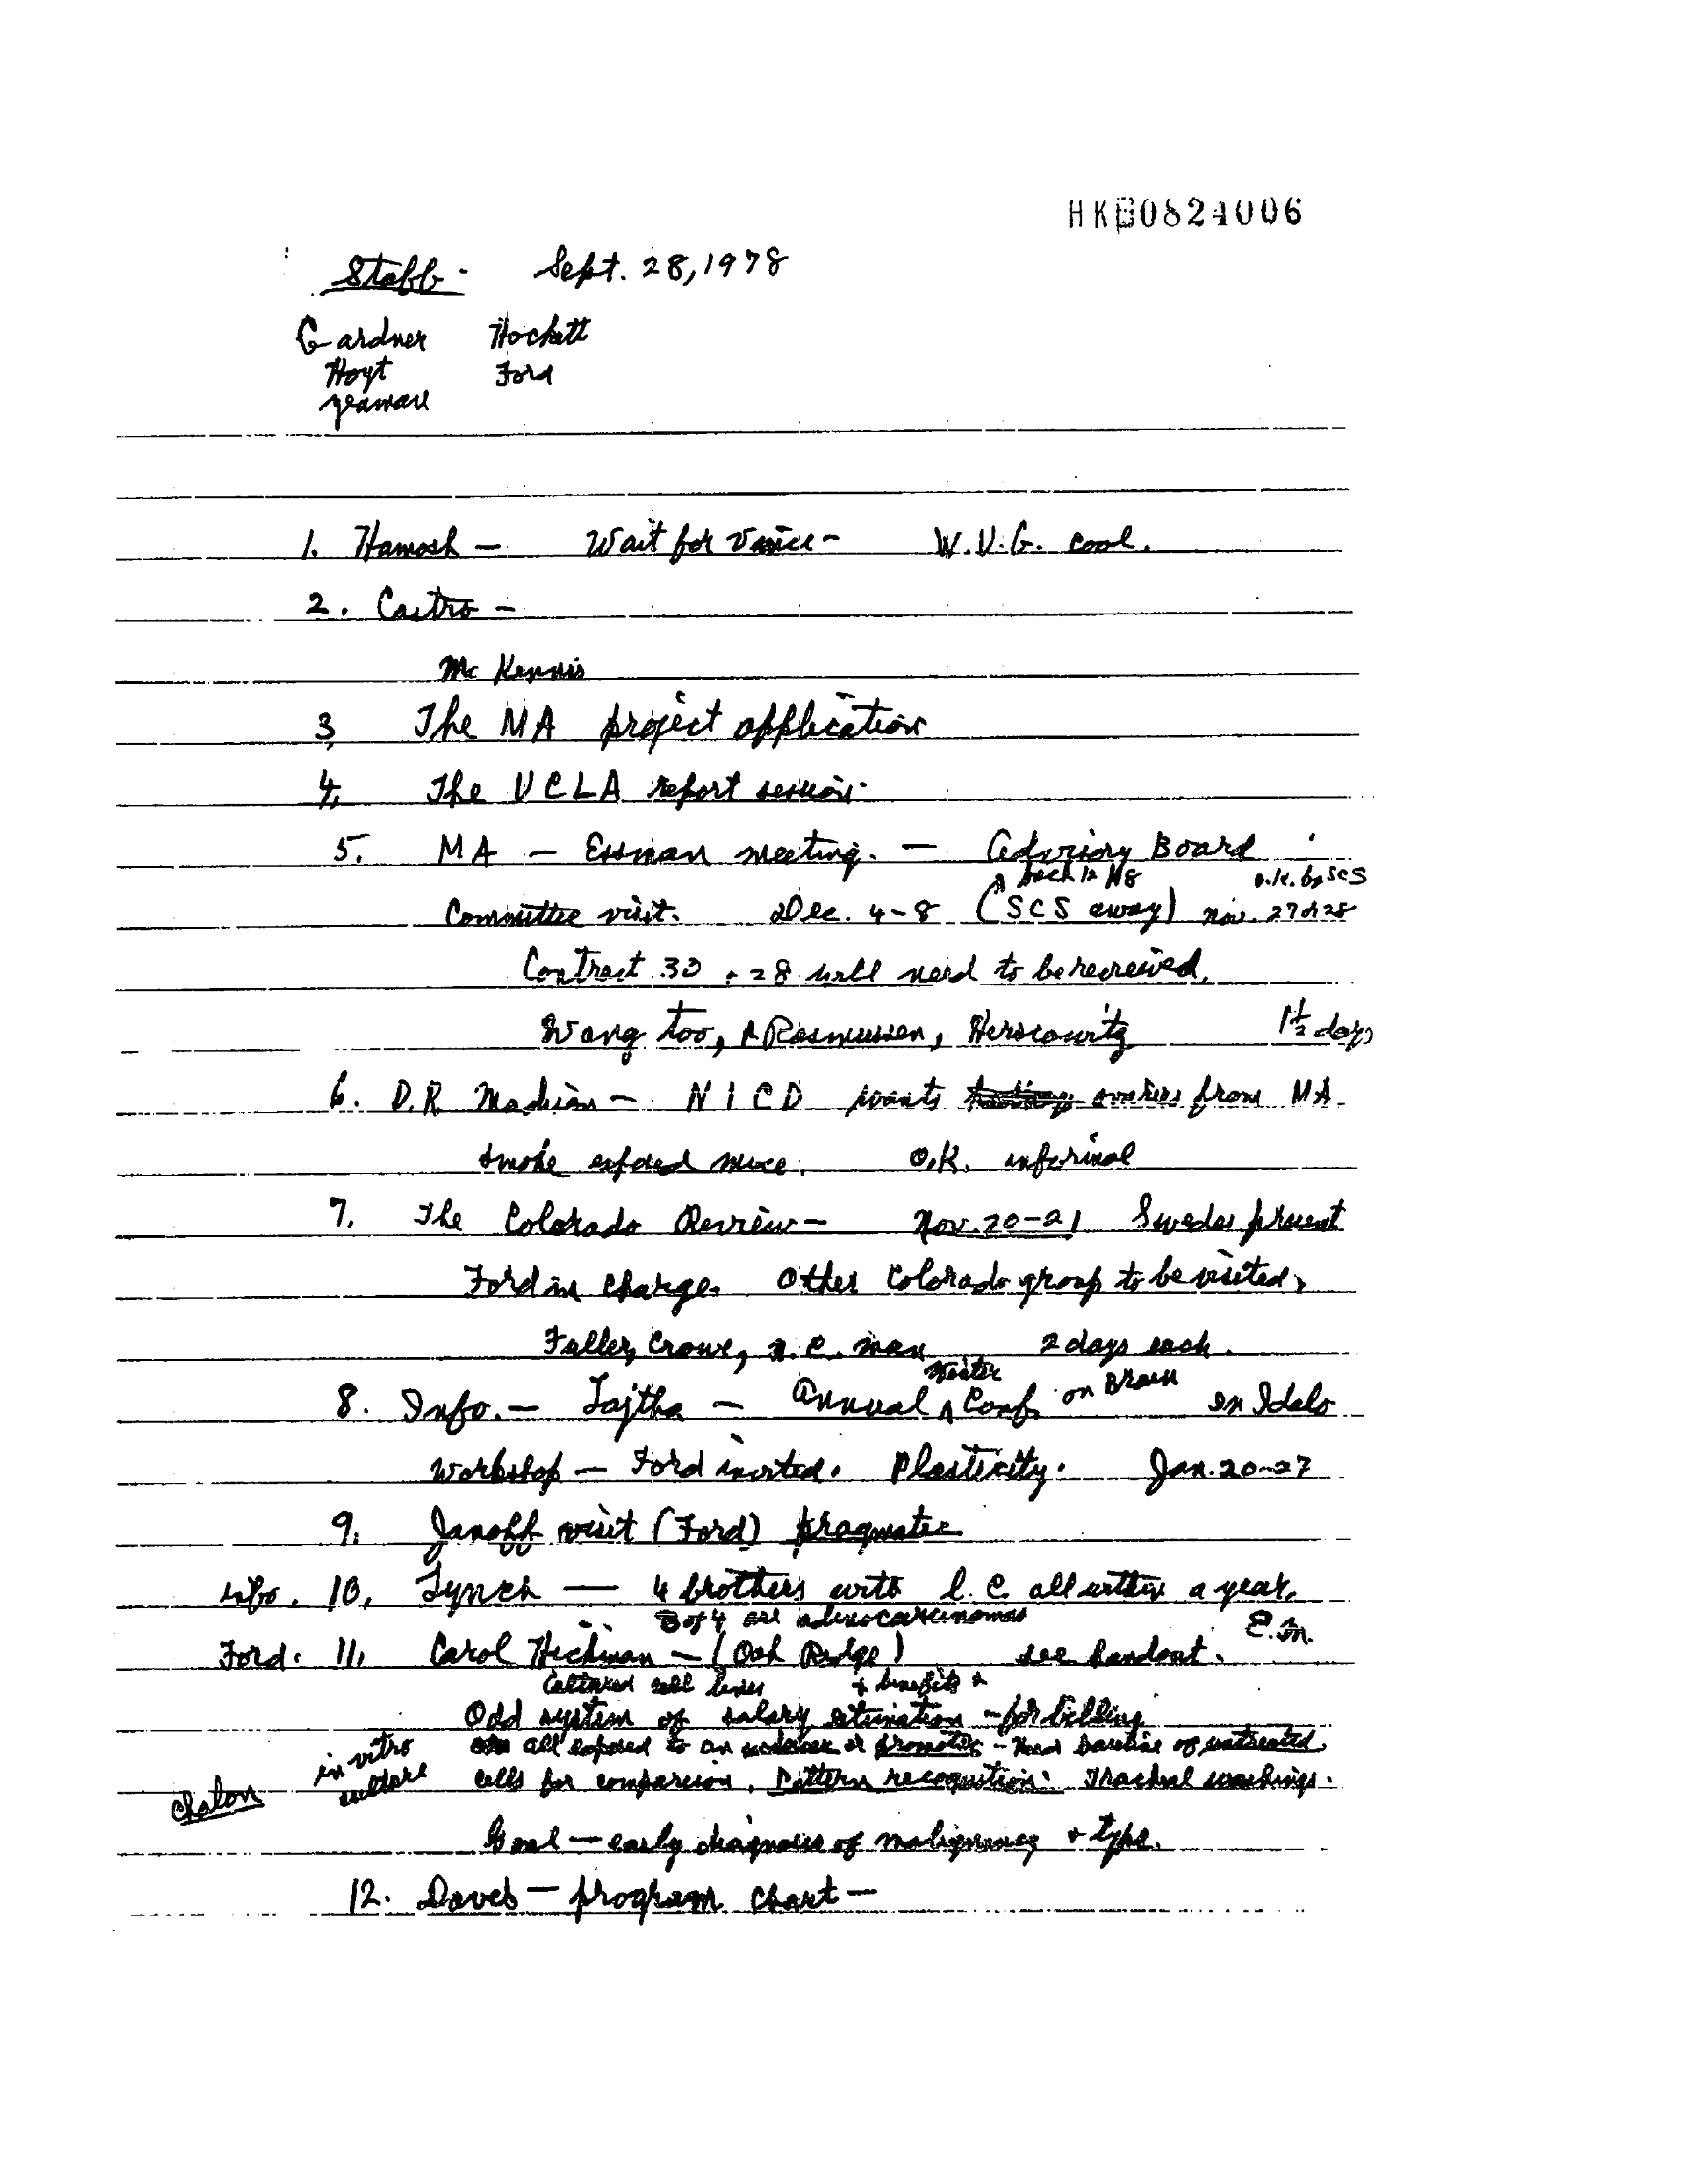 HK 0824006
Staff - Sept. 28, 1978
Gardner Hockett
Hoyt Ford
Zeamare
1. Hamosh - Wait for - W.U.G. cool.
2. Castro -
Mc Kennis
3, The MA project application
4, The UCLA report session.
5. MA - Essman meeting. - Advisory Board
back 12 N8 O.K. by SCS
Committee visit. Dec. 4-8 (SCS away) Nov. 27 or 28
Contract 30 + 28 will need to be reviewed,
Wang too, Rasmussen, Herscowitz 1½ days
6. D.R. - NICD wants ovaries from MA
smoke exposed mice. O.K. informal
7. The Colorado Review - Nov. 20-21 Swedes present
Ford in charge. Other Colorado group to be visited,
Fuller, Crowe, N.C. man 2 days each.
Winter
8. Info. - Lajtha - Annual Conf. on Brain in Idaho
Workshop - Ford invited. Plasticity. Jan. 20-27
9. Janoff visit (Ford) pragmatic
Info. 10, Lynch - 4 brothers with l.c. all within a year.
3 of 4 are adenocarcinomas
E.M.
Ford. 11, Carol Heckman - (Oak Ridge) see handout.
Cultured cell lines + benefits
Odd system of salary estimation - for billing
in vitro all exposed to an or - Need baseline of untreated
culture cells for comparison. Pattern recognition. Tracheal washings.
Chalon
Goal - early diagnosis of malignancy + type.
12. Daves - program chart -